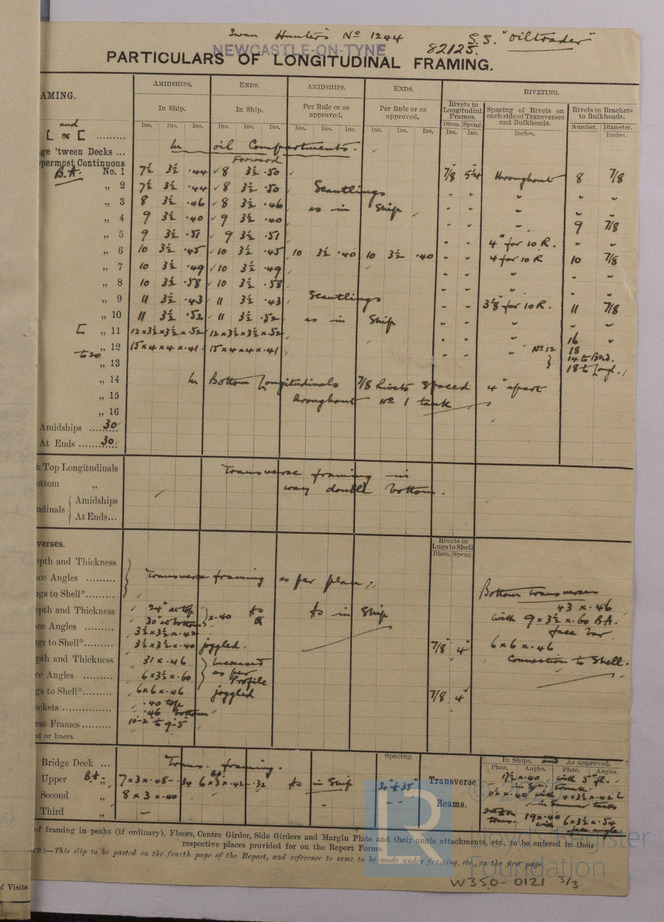 Swan Hunter's No 1244
S.S. "Oiltrader"
NEWCASTLE-ON-TYNE
82125.
PARTICULARS OF LONGITUDINAL FRAMING.
AMING.
AMIDSHIPS. ENDS. AMIDSHIPS. ENDS. RIVETING.
In Ship. In Ship. Per Rule or as approved. Per Rule or as approved. Rivets in Longitudinal Frames. Spacing of Rivets on each side of Transverses and Bulkheads. Rivets in Brackets to Bulkheads.
Ins. Ins. Ins. Ins. Ins. Ins. Ins. Ins. Ins. Ins. Ins. Ins. Diam. Spcng. Ins. Ins. Inches. Number. Diameter. Inches.
and
[ or [
In oil Compartments.
ge 'tween Decks ...
Forward
permost Continuous
B.A. No. 1 7½ 3½ .44 8 3½ .50 7/8 5¼ throughout 8 7/8
„ 2 7½ 3½ .44 8 3½ .50 Scantlings
„ 3 8 3½ .46 8 3½ .46 as in Ship
„ 4 9 3½ .40 9 3½ .40 9 7/8
„ 5 9 3½ .51 9 3½ .51 4" for 10 R.
„ 6 10 3½ .45 10 3½ .45 10 3½ .40 10 3½ .40 4 for 10 R 10 7/8
„ 7 10 3½ .49 10 3½ .49
„ 8 10 3½ .58 10 3½ .58
„ 9 11 3½ .43 11 3½ .43 Scantlings 3⅞ for 10 R. 11 7/8
„ 10 11 3½ .52 11 3½ .52 as in Ship
[ „ 11 12×3½×3½×.52 12×3½×3½×.52 16
„ 12 15×4×4×.41 15×4×4×.41 No 12 18
to 20 „ 13 14 to Bhd.
18 to Longl.
„ 14 In Bottom Longitudinals 7/8 Rivets spaced 4" apart
„ 15 throughout No 1 tank
„ 16
Amidships 30
At Ends 30
k Top Longitudinals Transverse framing in
ottom „ way double bottom.
dinals { Amidships
At Ends...
verses.
Rivets in Lugs to Shell
Diam. Spcng.
epth and Thickness
ace Angles Transverse framing as per plan
gs to Shell* Bottom transverses
epth and Thickness 24" at top 43 × .46
30" at bottom × .40 to in Ship with 9 × 3½ × .60 B.A.
ce Angles 3½×3½×.42 face bar
gs to Shell* 3½×3½×.40 joggled. 7/8 4" 6 × 6 × .46
pth and Thickness 31 × .46 Increased connection to Shell.
ce Angles 6×3½×.60 as per Profile
gs to Shell* 6×6×.46 joggled 7/8 4"
ckets .40 top
.46 bottom
rse Frames 10-2" to 9-5"
d or liners.
Bridge Deck ... Trans. framing. Spacing. In Ships, and As approved.
Plate. Angles. Plate. Angles.
Upper B.A. „ 7×3×.48-.34 6×3×.42-.32 to in Ship 30" & 35" Transverse
Second „ 8×3×.40 Beams.
Third „ —
of framing in peaks (if ordinary), Floors, Centre Girder, Side Girders and Margin Plate and their angle attachments, etc., to be entered in their
respective places provided for on the Report Forms.
:—This slip to be pasted on the fourth page of the Report, and reference to same to be made under framing, etc., on the first page.
of Visits
Register
Foundation
W350-0121 3/3